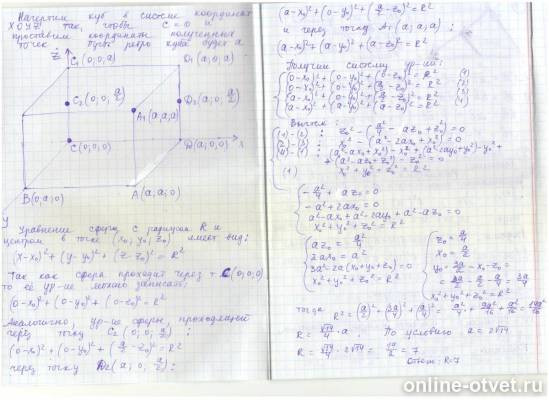 Начертим куб в системе координат
XOYZ так, чтобы C = 0 и
проставим координаты полученных
точек. Пусть ребро куба будет a
Z
C₁(0; 0; a)
D₁(a; 0; a)
C₂(0; 0; a/2)
A₁(a; a; a)
D₂(a; 0; a/2)
C(0; 0; 0)
D(a; 0; 0)
x
B(0; a; 0)
A(a; a; 0)
y
Уравнение сферы с радиусом R и
центром в точке (x₀; y₀; z₀) имеет вид:
(x-x₀)² + (y-y₀)² + (z-z₀)² = R²
Так как сфера проходит через т. C(0; 0; 0)
то её ур-ие можно записать:
(0-x₀)² + (0-y₀)² + (0-z₀)² = R²
Аналогично, ур-ие сферы, проходящей
через точку C₂(0; 0; a/2):
(0-x₀)² + (0-y₀)² + (a/2-z₀)² = R²
через точку D₂(a; 0; a/2):
(a-x₀)² + (0-y₀)² + (a/2-z₀)² = R²
и через точку A₁(a; a; a):
(a-x₀)² + (a-y₀)² + (a-z₀)² = R²
Получим систему ур-ий:
(0-x₀)² + (0-y₀)² + (0-z₀)² = R²
(0-x₀)² + (0-y₀)² + (a/2-z₀)² = R²
(a-x₀)² + (0-y₀)² + (a/2-z₀)² = R²
(a-x₀)² + (a-y₀)² + (a-z₀)² = R²
Вычтем:
(1)-(2): z₀² - (a²/4 - az₀ + z₀²) = 0
(2)-(3): x₀² - (a² - 2ax₀ + x₀²) = 0
(1) x₀² + y₀² + z₀² = R²
-a²/4 + az₀ = 0
-a² + 2ax₀ = 0
x₀² + y₀² + z₀² = R²
az₀ = a²/4
2ax₀ = a²
3a² - 2a(x₀+y₀+z₀) = 0
x₀² + y₀² + z₀² = R²
z₀ = a/4
x₀ = a/2
y₀ = 3a/2 - x₀ - z₀ =
= 3a/2 - a/2 - a/4 = 3a/4
x₀² + y₀² + z₀² = R²
тогда R² = (a/2)² + (3a/4)² + (a/4)² = a²/4 + 9a²/16 + a²/16 = 14a²/16
R = √14/4 · a. По условию a = 2√14
R = √14/4 · 2√14 = 14/2 = 7
Ответ: R=7
online-otvet.ru